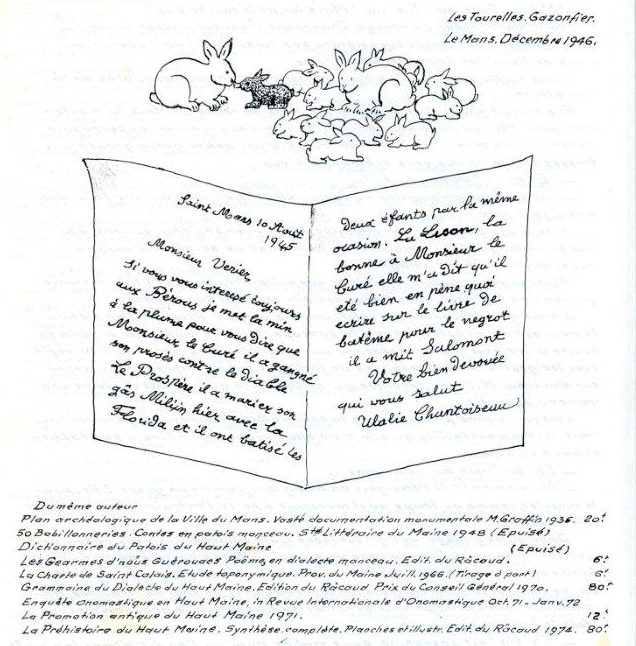 Les Tourelles. Gazonfier.
Le Mans, Décembre 1946.
Saint Mars 10 Aout
1945
Monsieur Verier,
si vous vous interesé toujours
aux Bérous je met la min
à la pleume pour vous dire que
Moonsieur le Curé il a gangné
son prosès contre le diable
Le Prospère il a marier son
gâs Milijn hier avec la
Florida et il ont batisé les
deux éfants par la même
ocasion. La Lison, la
bonne à Monsieur le
Curé elle m'a dit qu'il
eté bien en pène quoi
ecrire sur le livre de
batême pour le negrot
il a mit Salomont
Votre bien devouée
qui vous salut
Ulalie Chantoiseau
Du même auteur
Plan archéologique de la Ville du Mans. Vaste documentation monumentale M. Graffin 1936. 20.f
50 Bobillonneries. Contes en patois manceau. Sté Littéraire du Maine 1948 (Epuisé)
Dictionnaire du Patois du Haut Maine (Epuisé)
Les Gearmes d'noûs Guérouées Poëme, en dialecte manceau. Edit. du Râcaud. 6.f
La Charte de Saint Calais. Etude toponymique. Prov. du Maine Juill. 1966. (Tirage à part) 6.f
Grammaire du Dialecte du Haut Maine. Edition du Râcaud Prix du Conseil Général 1970. 80.f
Enquête Onomastique en Haut Maine, in Revue Internationale d'Onomastique Oct. 71 - Janv. 72
La Promotion antique du Haut Maine 1971. 12.f
La Préhistoire du Haut Maine. Synthèse complète. Planches et illustr. Edit. du Râcaud 1974. 80.f